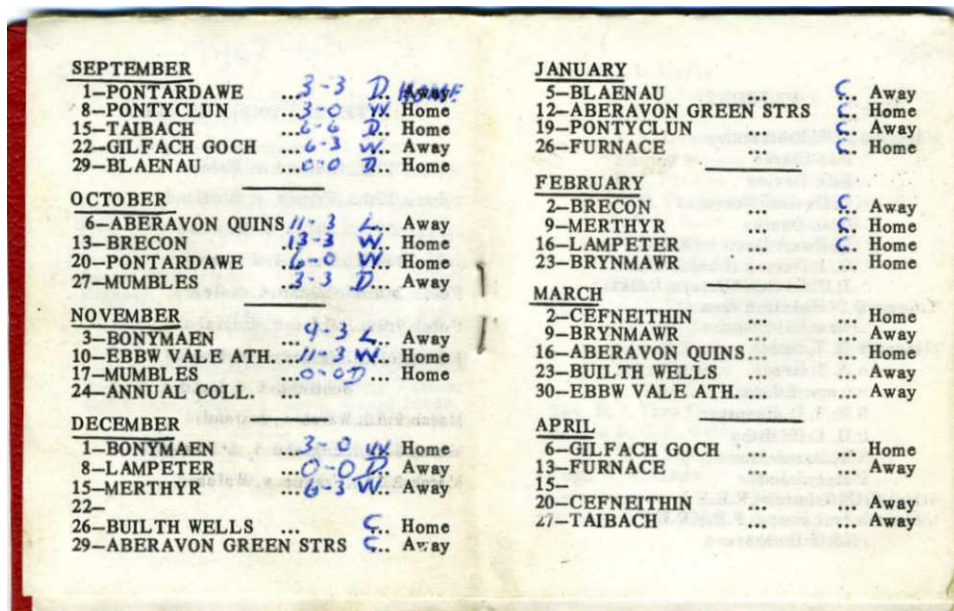 SEPTEMBER
1—PONTARDAWE ... 3-3 D. Away HOME
8—PONTYCLUN ... 3-0 W. Home
15—TAIBACH ... 6-6 D. Home
22—GILFACH GOCH ... 6-3 W. Away
29—BLAENAU ... 0-0 D.. Home
OCTOBER
6—ABERAVON QUINS 11-3 L.. Away
13—BRECON 13-3 W. Home
20—PONTARDAWE ... 6-0 W.. Home
27—MUMBLES ... 3-3 D.. Away
NOVEMBER
3—BONYMAEN ... 9-3 L.. Away
10—EBBW VALE ATH. ... 11-3 W.. Home
17—MUMBLES ... 0-0 D... Home
24—ANNUAL COLL. ...
DECEMBER
1—BONYMAEN ... 3-0 W. Home
8—LAMPETER ... 0-0 D.. Away
15—MERTHYR ... 6-3 W.. Away
22—
26—BUILTH WELLS ... C.. Home
29—ABERAVON GREEN STRS C... Away
JANUARY
5—BLAENAU ... C.. Away
12—ABERAVON GREEN STRS C.. Home
19—PONTYCLUN ... C.. Away
26—FURNACE ... C.. Home
FEBRUARY
2—BRECON ... C.. Away
9—MERTHYR ... C.. Home
16—LAMPETER ... ... Home
23—BRYNMAWR ... ... Home
MARCH
2—CEFNEITHIN Home
9—BRYNMAWR ... ... Away
16—ABERAVON QUINS. ... ... Home
23—BUILTH WELLS ... ... Away
30—EBBW VALE ATH. ... ... Away
APRIL
6—GILFACH GOCH ... ... Home
13—FURNACE ... ... Away
15—
20—CEFNEITHIN ... ... Away
27—TAIBACH ... ... Away